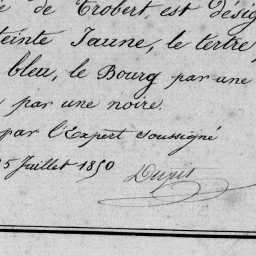 de Trobert est désig
teinte Jaune, le tertre
bleu, le Bourg par une
par une noire.
par l'Expert soussigné
5 Juillet 1850
Dupuis